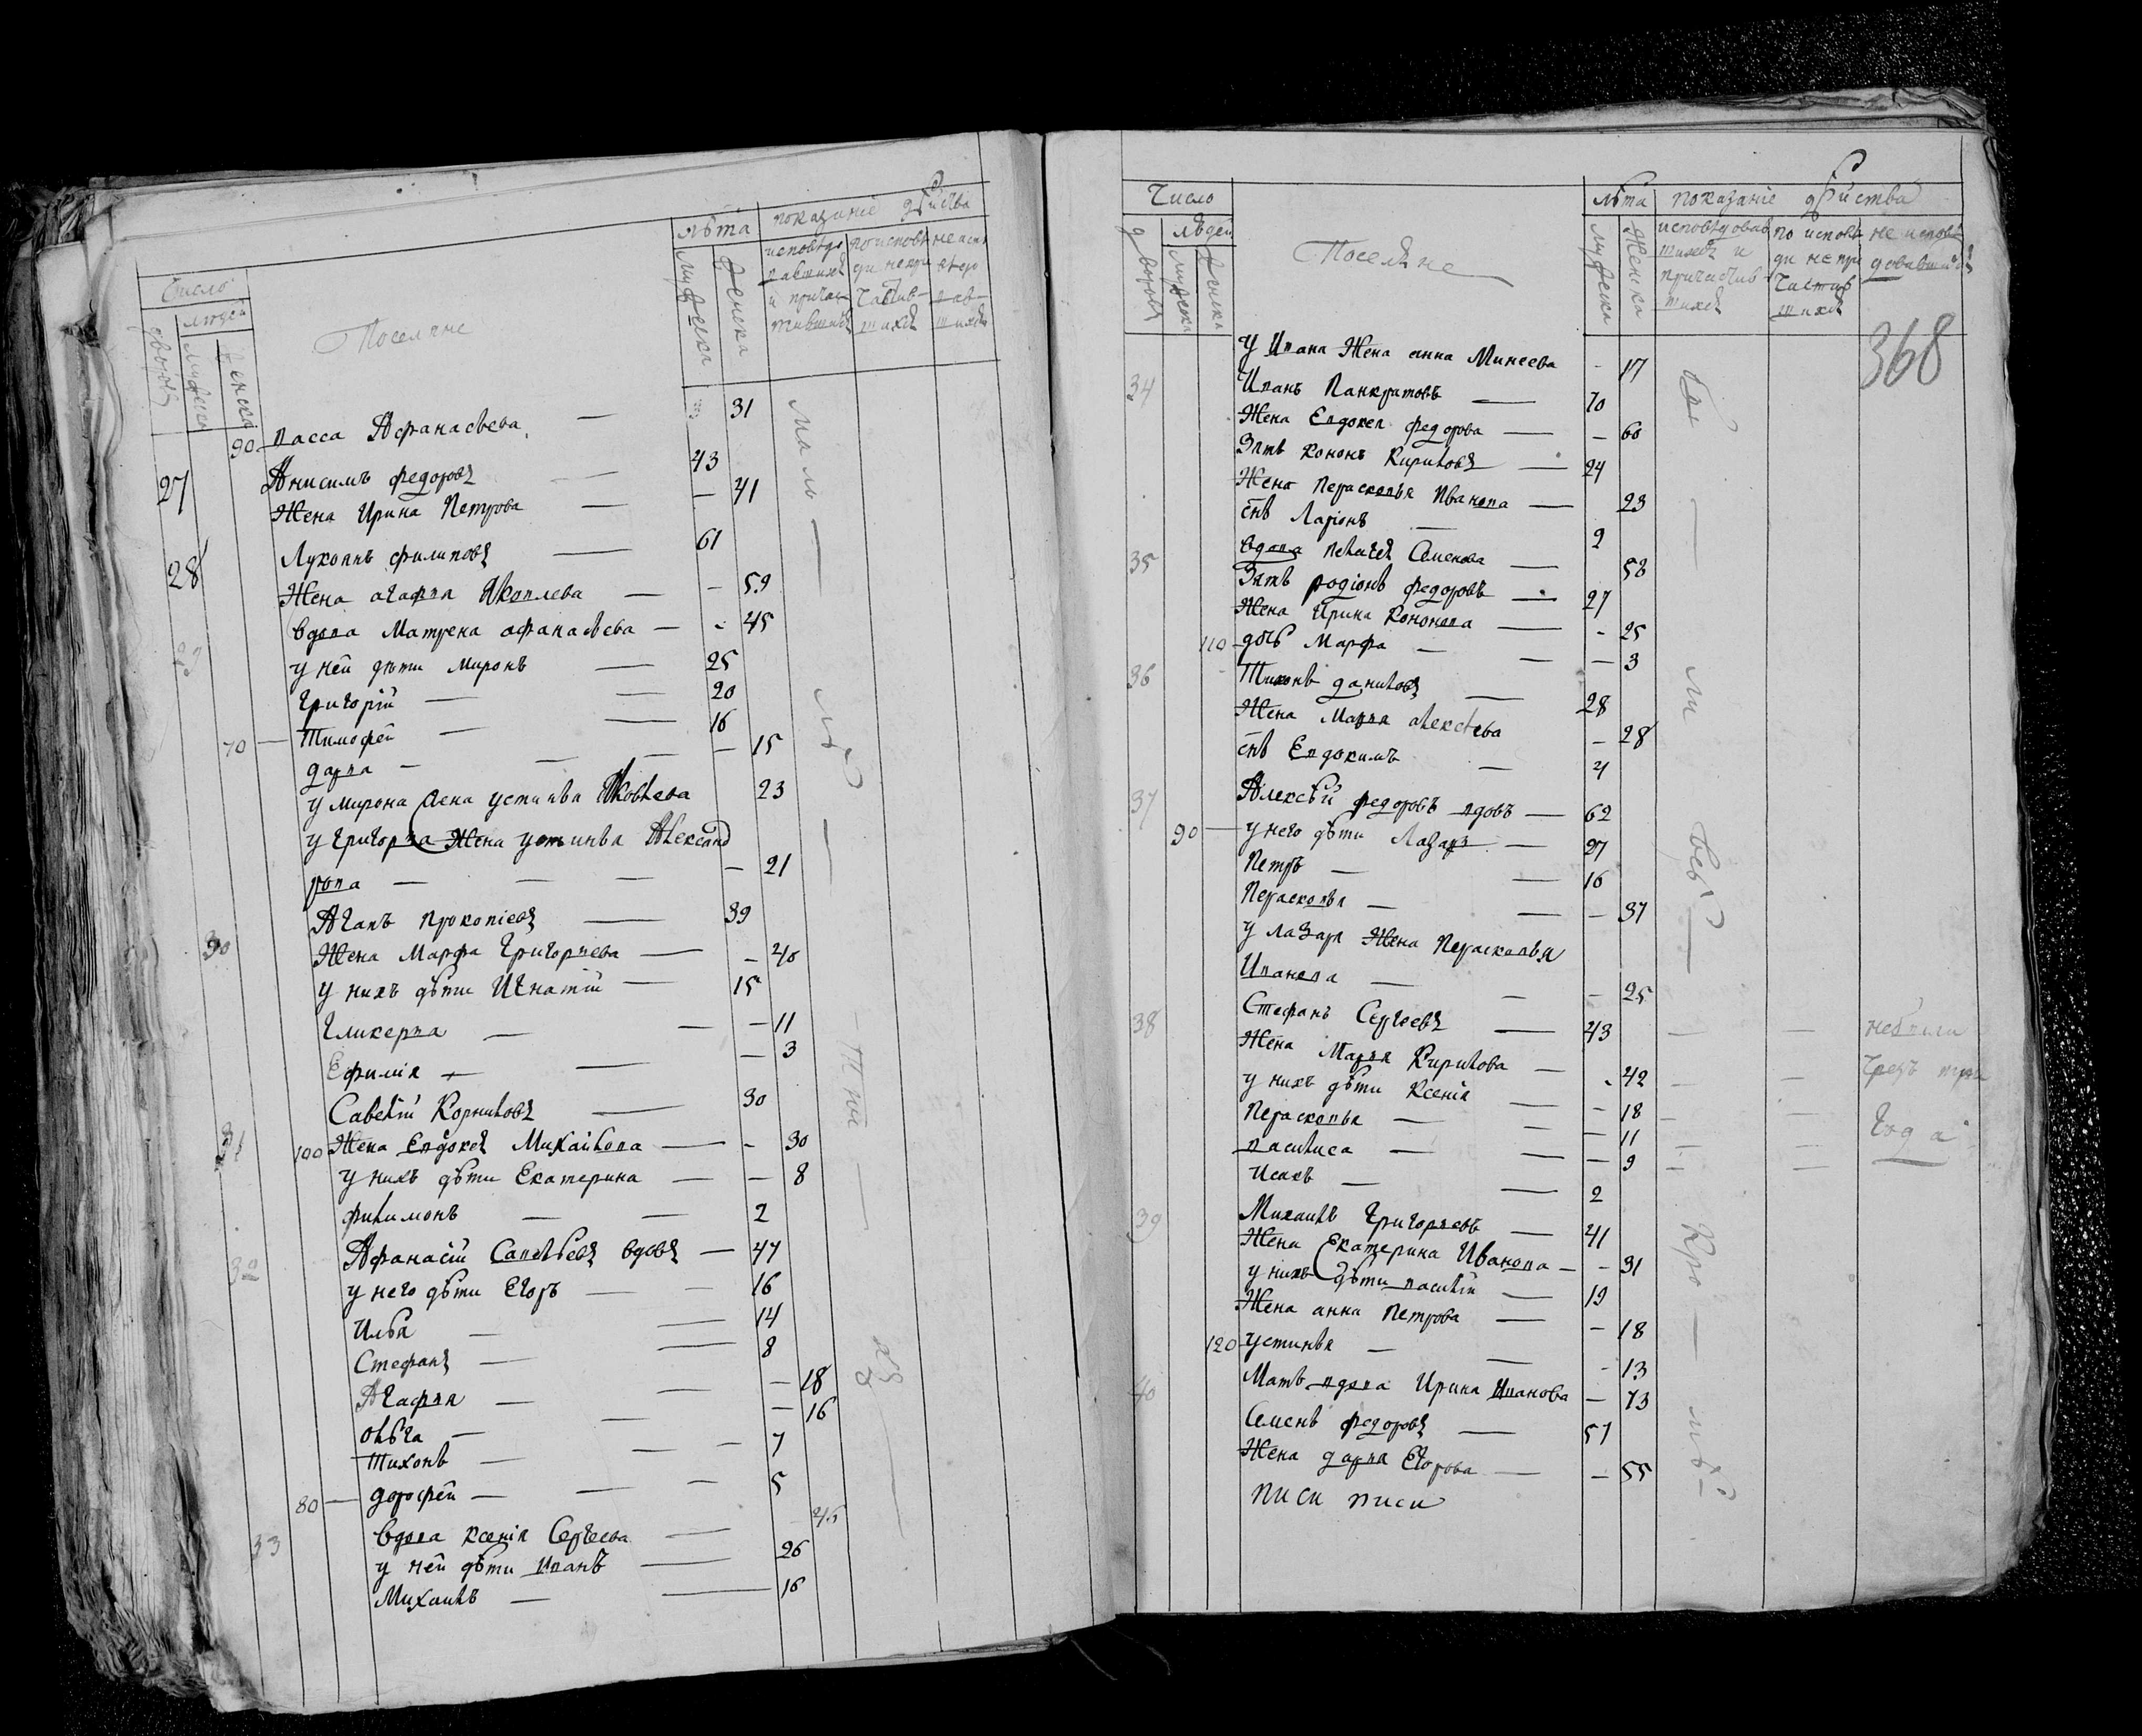 Число
людей
дворов
мужеска
женска
Поселяне
лѣта
мужеска
женска
показаніе дѣйства
90 васса Афанасьева — 31
27 Анисимъ федоровъ — 43
Жена Ирина Петрова — — 41
28 Лукоянъ филиповъ — 61
Жена агафия Яковлева — — 59
вдова Матрена афанасьева — - 45
у ней дѣти миронъ — 25
григорій — — 20
70 — Тимофей — — 16
дария — — — — 15
у мирона жена устинья Яковлева 23
у григория Жена устинья Александ
рова — — — — 21
Агапъ прокопіевъ — 39
30 Жена Марфа григориева — — 40
у нихъ дѣти Игнатій — 15
гликерия — — — 11
Ефимія — — — 3
Савелій Корниловъ — 30
31 100 Жена Евдокея Михаилова — - 30
у нихъ дѣти Екатерина — — 8
филимонъ — — 2
32 Афанасій Савельевъ вдовъ — 47
у него дѣти Егоръ — — 16
Илья — — 14
Стефанъ — — 8
Агафия — — — 18
ольга — — — 16
Тихонъ — — — 7
80 — дорофей — — — 5
33 вдова ксенія Сергеева — - 45
у ней дѣти иванъ — 26
Михаилъ — — 16
Число
людей
дворов
мужеска
женска
Поселяне
лѣта
мужеска
женска
показаніе дѣйства
исповѣдовав
шихся и
причастив
шихся
по исповѣ
ди не при
частив
шихся
не исповѣ
довавшихся
368
У Ивана Жена анна Минеева - 17
34 Иванъ Панкратовъ — 70
Жена Евдокея федорова — — 60
Зять кононъ Кириловъ — 24
Жена перасковья Иванова — 23
снъ Ларіонъ — 2
35 вдова пелагея Семенова — 58
Зять родіонъ федоровъ — 27
Жена Ирина Кононова — - 25
110 - дочь Марфа — — — 3
36 Тихонъ даниловъ — 28
Жена Мария алексѣева — 28
снъ Евдокимъ — 4
37 Алексѣй федоровъ вдовъ — 62
90 — у него дѣти Лазарь — 27
Петръ — — 16
Перасковья — — — 37
у лазаря Жена Перасковья
Иванова — — — 25
38 Стефанъ Сергеевъ — 43 — — небыли
Жена Мария Кирилова — - 42 — — чрезъ три
у нихъ дѣти Ксенія — — 18 — — года
Перасковья — — — 11
василиса — — — 9
Исакъ — — 2
39 Михаилъ григориевъ — 41
Жена Екатерина Иванова — - 31
у нихъ дѣти василій — 19
Жена анна Петрова — — 18
120 - устинья — — - 13
Мать вдова Ирина Иванова — 73
40 Семенъ федоровъ — 51
Жена дария Егорова — — 55
писи писи